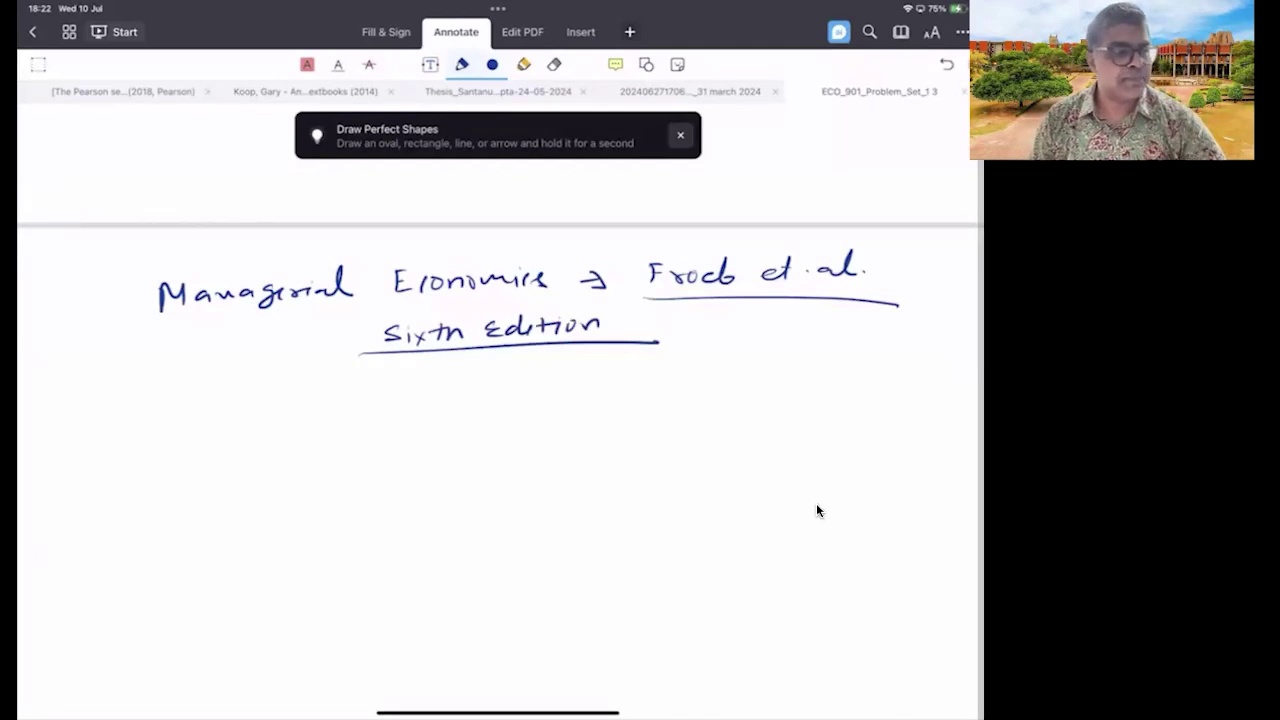 18:22 Wed 10 Jul
75%
Start
Fill & Sign
Annotate
Edit PDF
Insert
[The Pearson se...(2018, Pearson)
Koop, Gary - An...extbooks (2014)
Thesis_Santanu...pta-24-05-2024
202406271706..._31 march 2024
ECO_901_Problem_Set_1 3
Draw Perfect Shapes
Draw an oval, rectangle, line, or arrow and hold it for a second
Managerial Economics → Froeb et. al.
Sixth Edition